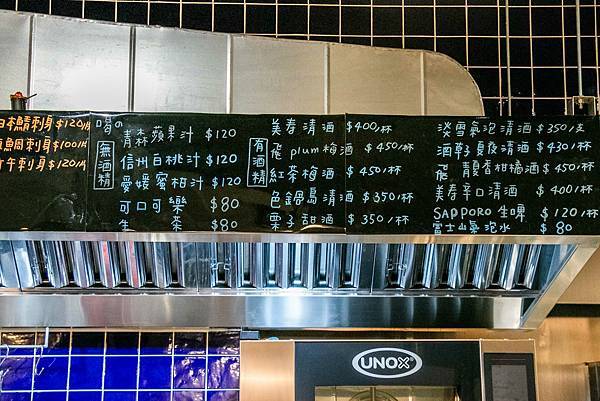 本鯖刺身 $120/片
鯛刺身 $100/片
午刺身 $120/片
喝の
無酒精
青森蘋果汁 $120
信州白桃汁 $120
愛媛蜜柑汁 $120
可口可樂 $80
生 茶 $80
有酒精
美春清酒 $400/杯
飛 plum梅酒 $450/杯
紅茶梅酒 $450/杯
色鍋島清酒 $350/杯
栗子甜酒 $350/杯
淡雪氣泡清酒 $350/支
酒草子夏夜清酒 $430/杯
飛 靚春柑橘酒 $450/杯
美春辛口清酒 $400/杯
SAPPORO 生啤 $120/杯
富士山氣泡水 $80
UNOX